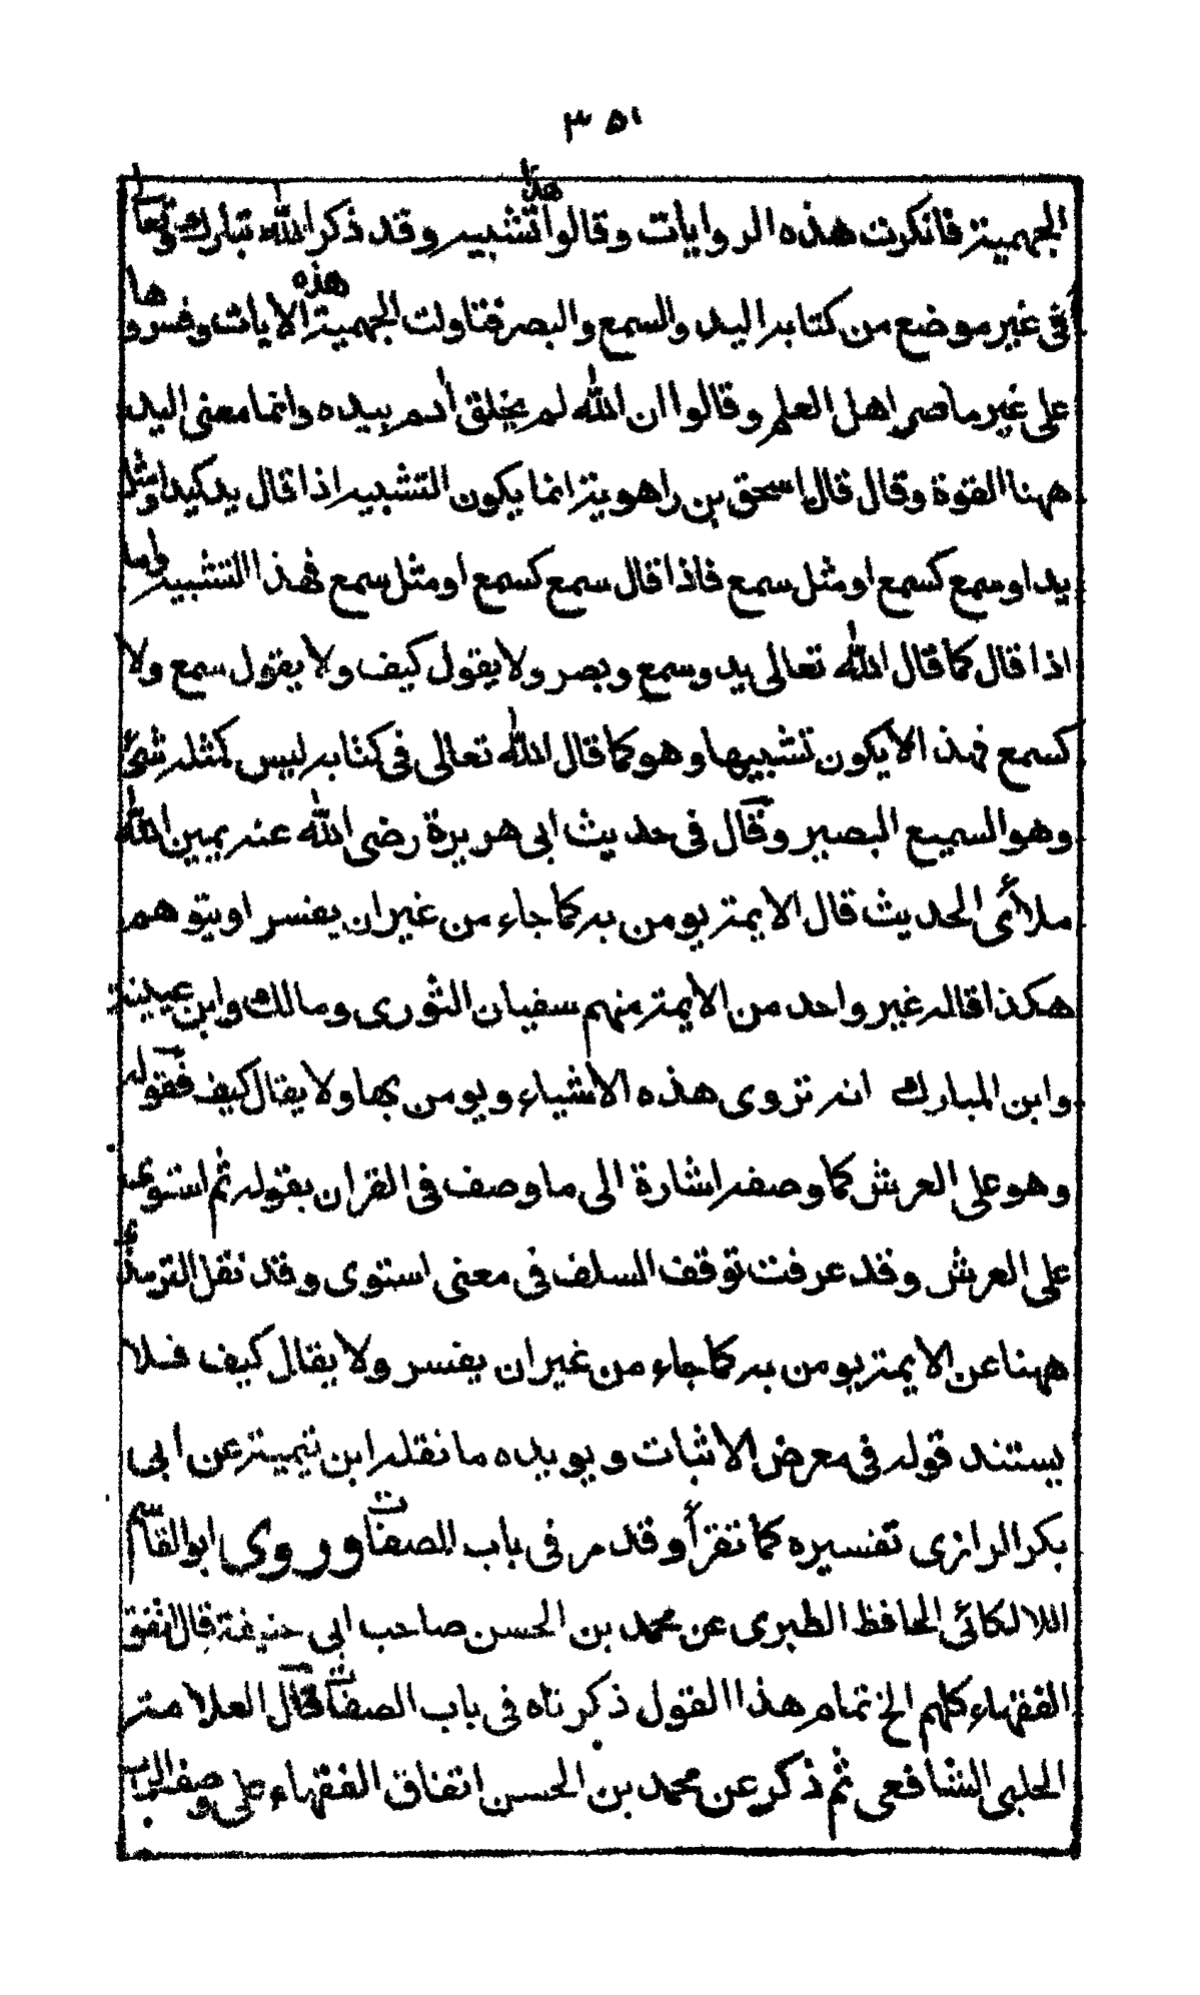 ٣٥١
الجهمية فانكرت هذه الروايات وقالوا هذا تشبيه وقد ذكر الله تبارك وتعا
فى غير موضع من كتابه اليد والسمع والبصر فتاولت الجهمية هذه الايات وفسروها
على غير ما فسر اهل العلم وقالوا ان الله لم يخلق ادم بيده وانما معنى اليد
ههنا القوة وقال قال اسحق بن راهوية انما يكون التشبيه اذا قال يد كيد او مثل
يد او سمع كسمع او مثل سمع فاذا قال سمع كسمع او مثل سمع فهذا التشبيه واما
اذا قال كما قال الله تعالى يد وسمع وبصر ولا يقول كيف ولا يقول سمع ولا
كسمع فهذا لا يكون تشبيها وهو كما قال الله تعالى فى كتابه ليس كمثله شئ
وهو السميع البصير وقال فى حديث ابى هريرة رضى الله عنه يمين الله
ملأى الحديث قال الايمة يومن به كما جاء من غير ان يفسر او يتوهم
هكذا قاله غير واحد من الايمة منهم سفيان الثورى ومالك وابن عيينة
وابن المبارك انه تروى هذه الأشياء ويومن بها ولا يقال كيف فقوله
وهو على العرش كما وصف اشارة الى ما وصف فى القران بقوله ثم استوى
على العرش وقد عرفت توقف السلف فى معنى استوى وقد نقل الترمذى
ههنا عن الايمة يومن به كما جاء من غير ان يفسر ولا يقال كيف فلا
يستند قوله فى معرض الاثبات ويويده ما نقله ابن تيمية عن ابى
بكر الرازى تفسيره كما تقرأ وقد مر فى باب الصفات وروى ابوالقاسم
اللالكائى الحافظ الطبرى عن محمد بن الحسن صاحب ابى حنيفة قال اتفق
الفقهاء كلهم الخ تمام هذا القول ذكرناه فى باب الصفات قال العلامة
الحلبى الشافعى ثم ذكر عن محمد بن الحسن اتفاق الفقهاء على وصف الرب